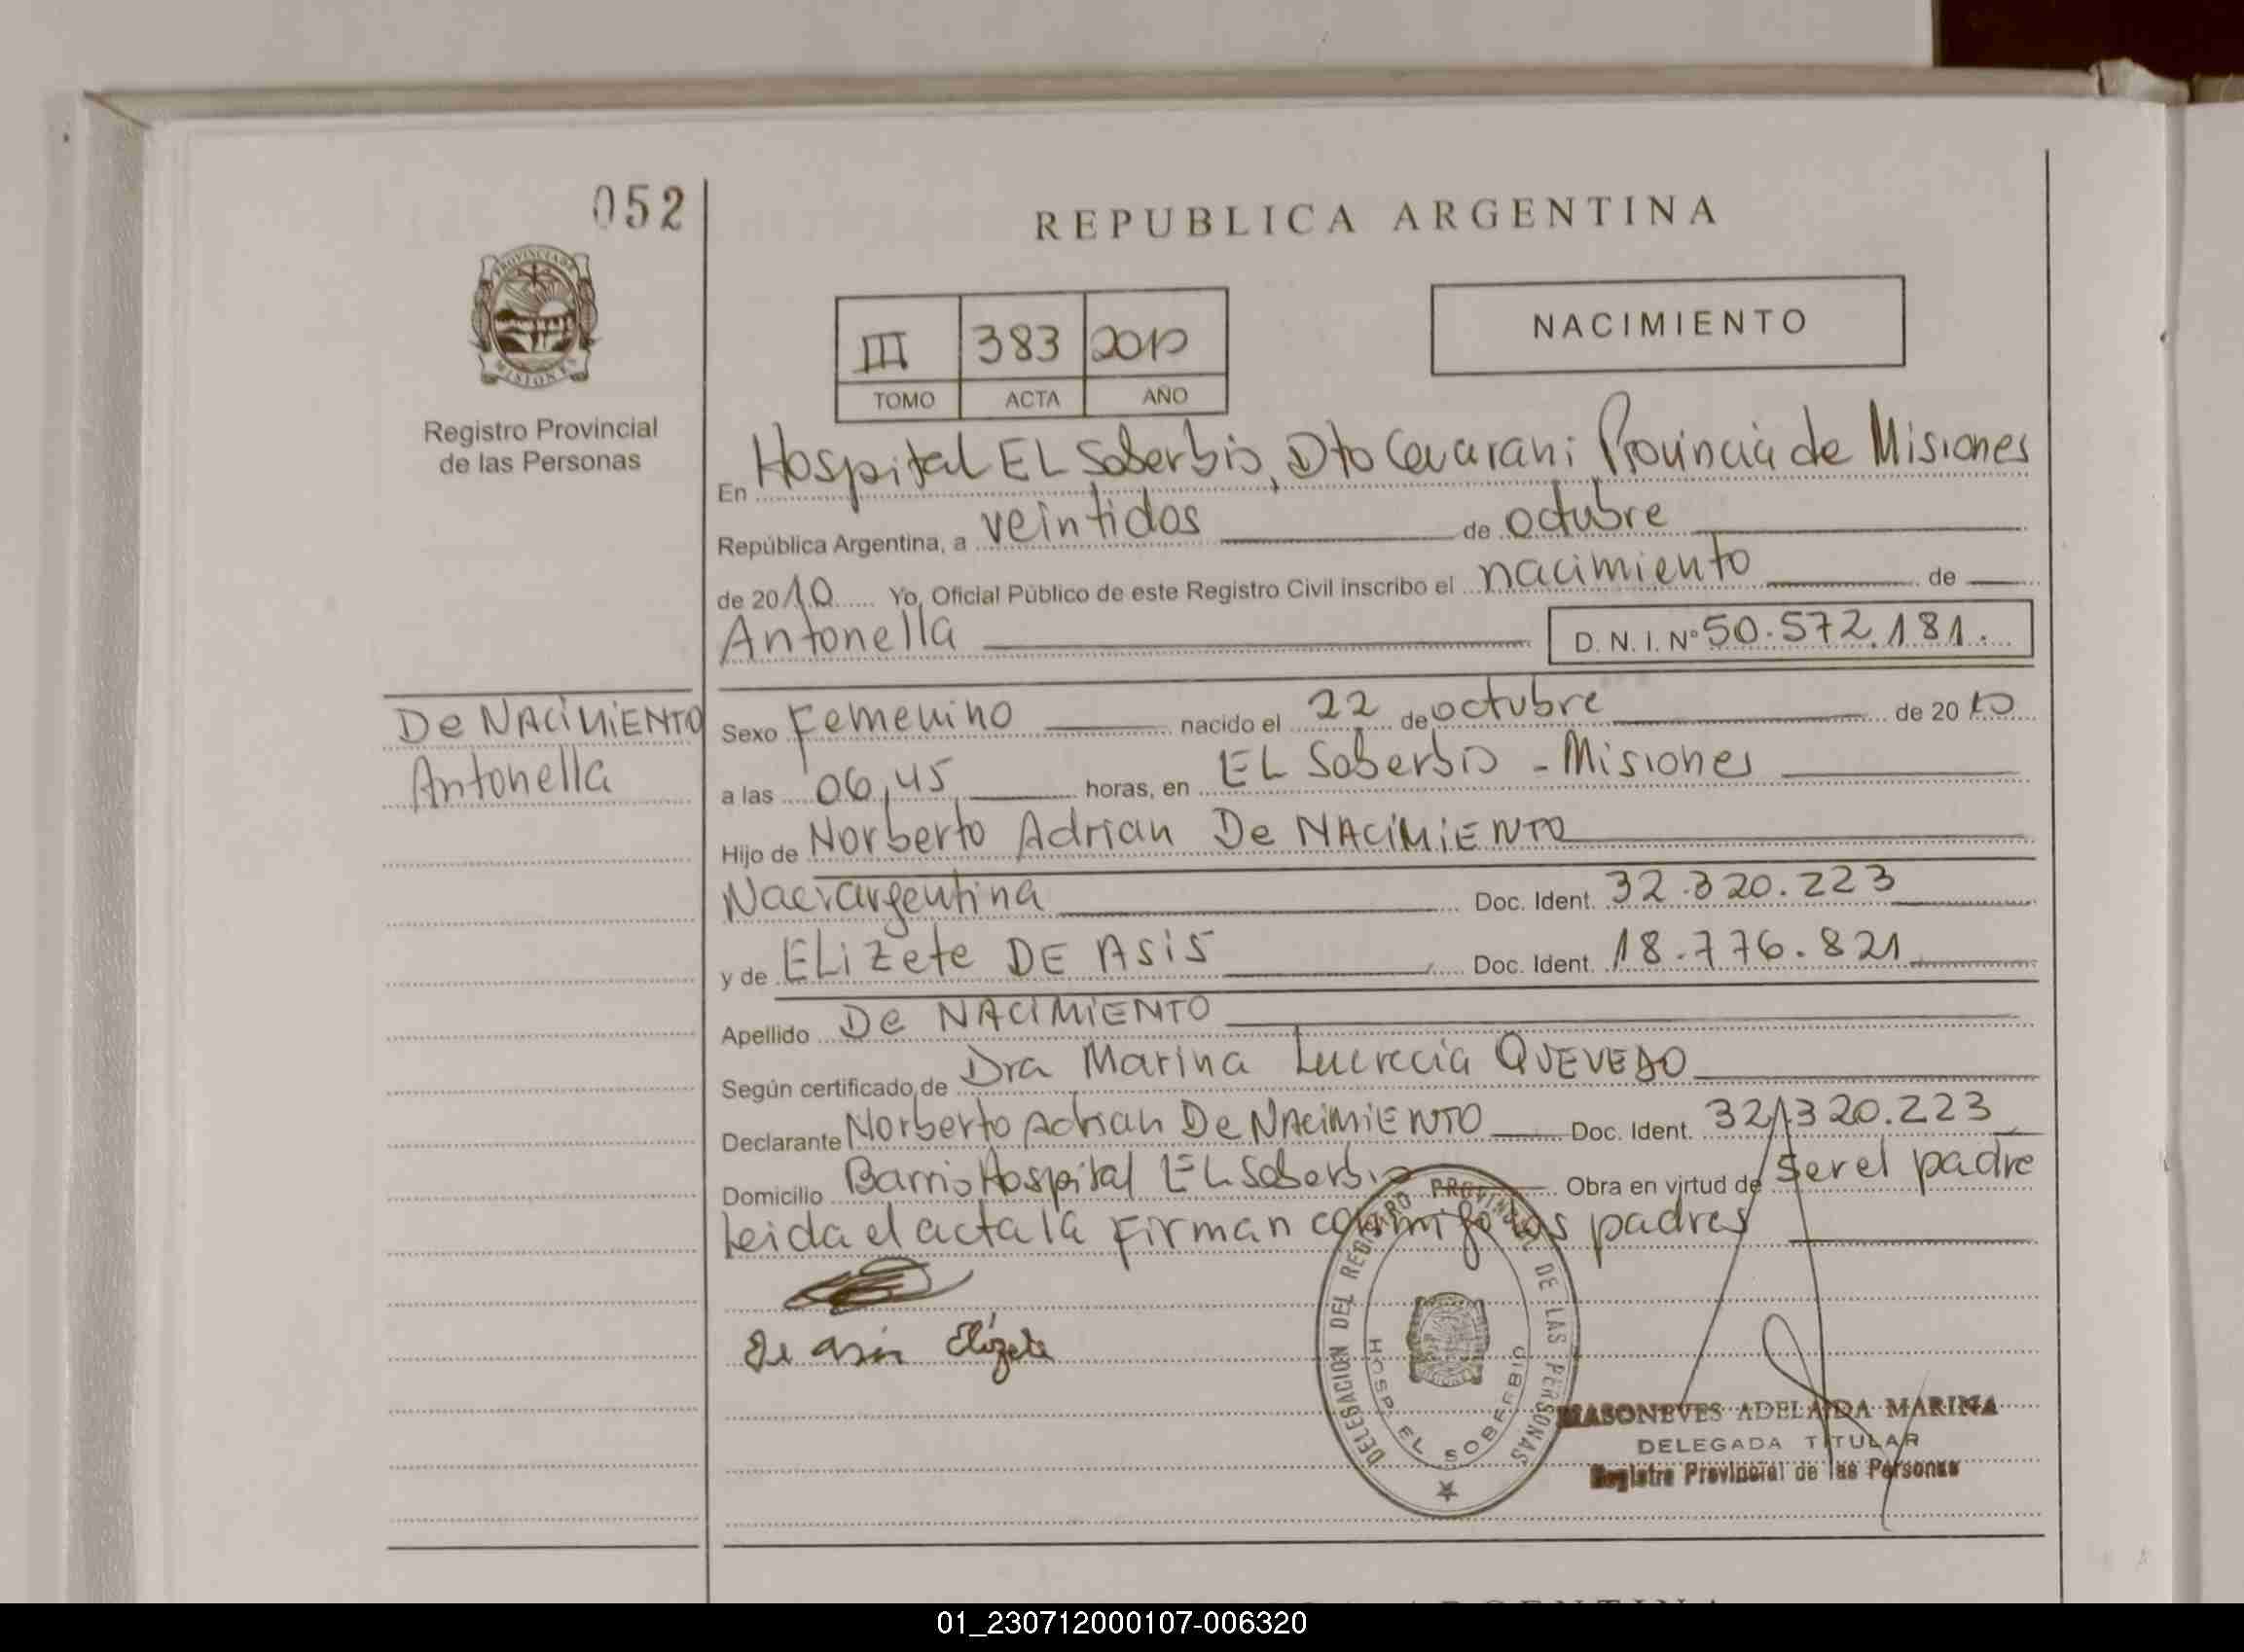 052
REPUBLICA ARGENTINA
PROVINCIA DE
MISIONES
Registro Provincial
de las Personas
III 383 2010
TOMO ACTA AÑO
NACIMIENTO
En Hospital EL Soberbio, Dto Guarani Provincia de Misiones
República Argentina, a veintidos de octubre
de 2010 Yo, Oficial Público de este Registro Civil inscribo el nacimiento de
Antonella D. N. I. Nº 50.572.181.
De NACIMIENTO
Antonella
Sexo Femenino nacido el 22 de octubre de 2010
a las 06,45 horas, en EL Soberbio - Misiones
Hijo de Norberto Adrian De NACIMIENTO
Nac. argentina Doc. Ident. 32.320.223
y de ELizete DE ASIS Doc. Ident. 18.776.821
Apellido De NACIMIENTO
Según certificado de Dra Marina Lucrecia QUEVEDO
Declarante Norberto Adrian De NACIMIENTO Doc. Ident. 32.320.223
Domicilio Barrio Hospital EL Soberbio Obra en virtud de ser el padre
Leida el acta la firman conmigo los padres
De asis Elizete
DELEGACION DEL REGISTRO PROVINCIAL DE LAS PERSONAS
HOSP. EL SOBERBIO
MASONEVES ADELAIDA MARINA
DELEGADA TITULAR
Registro Provincial de las Personas
01_230712000107-006320